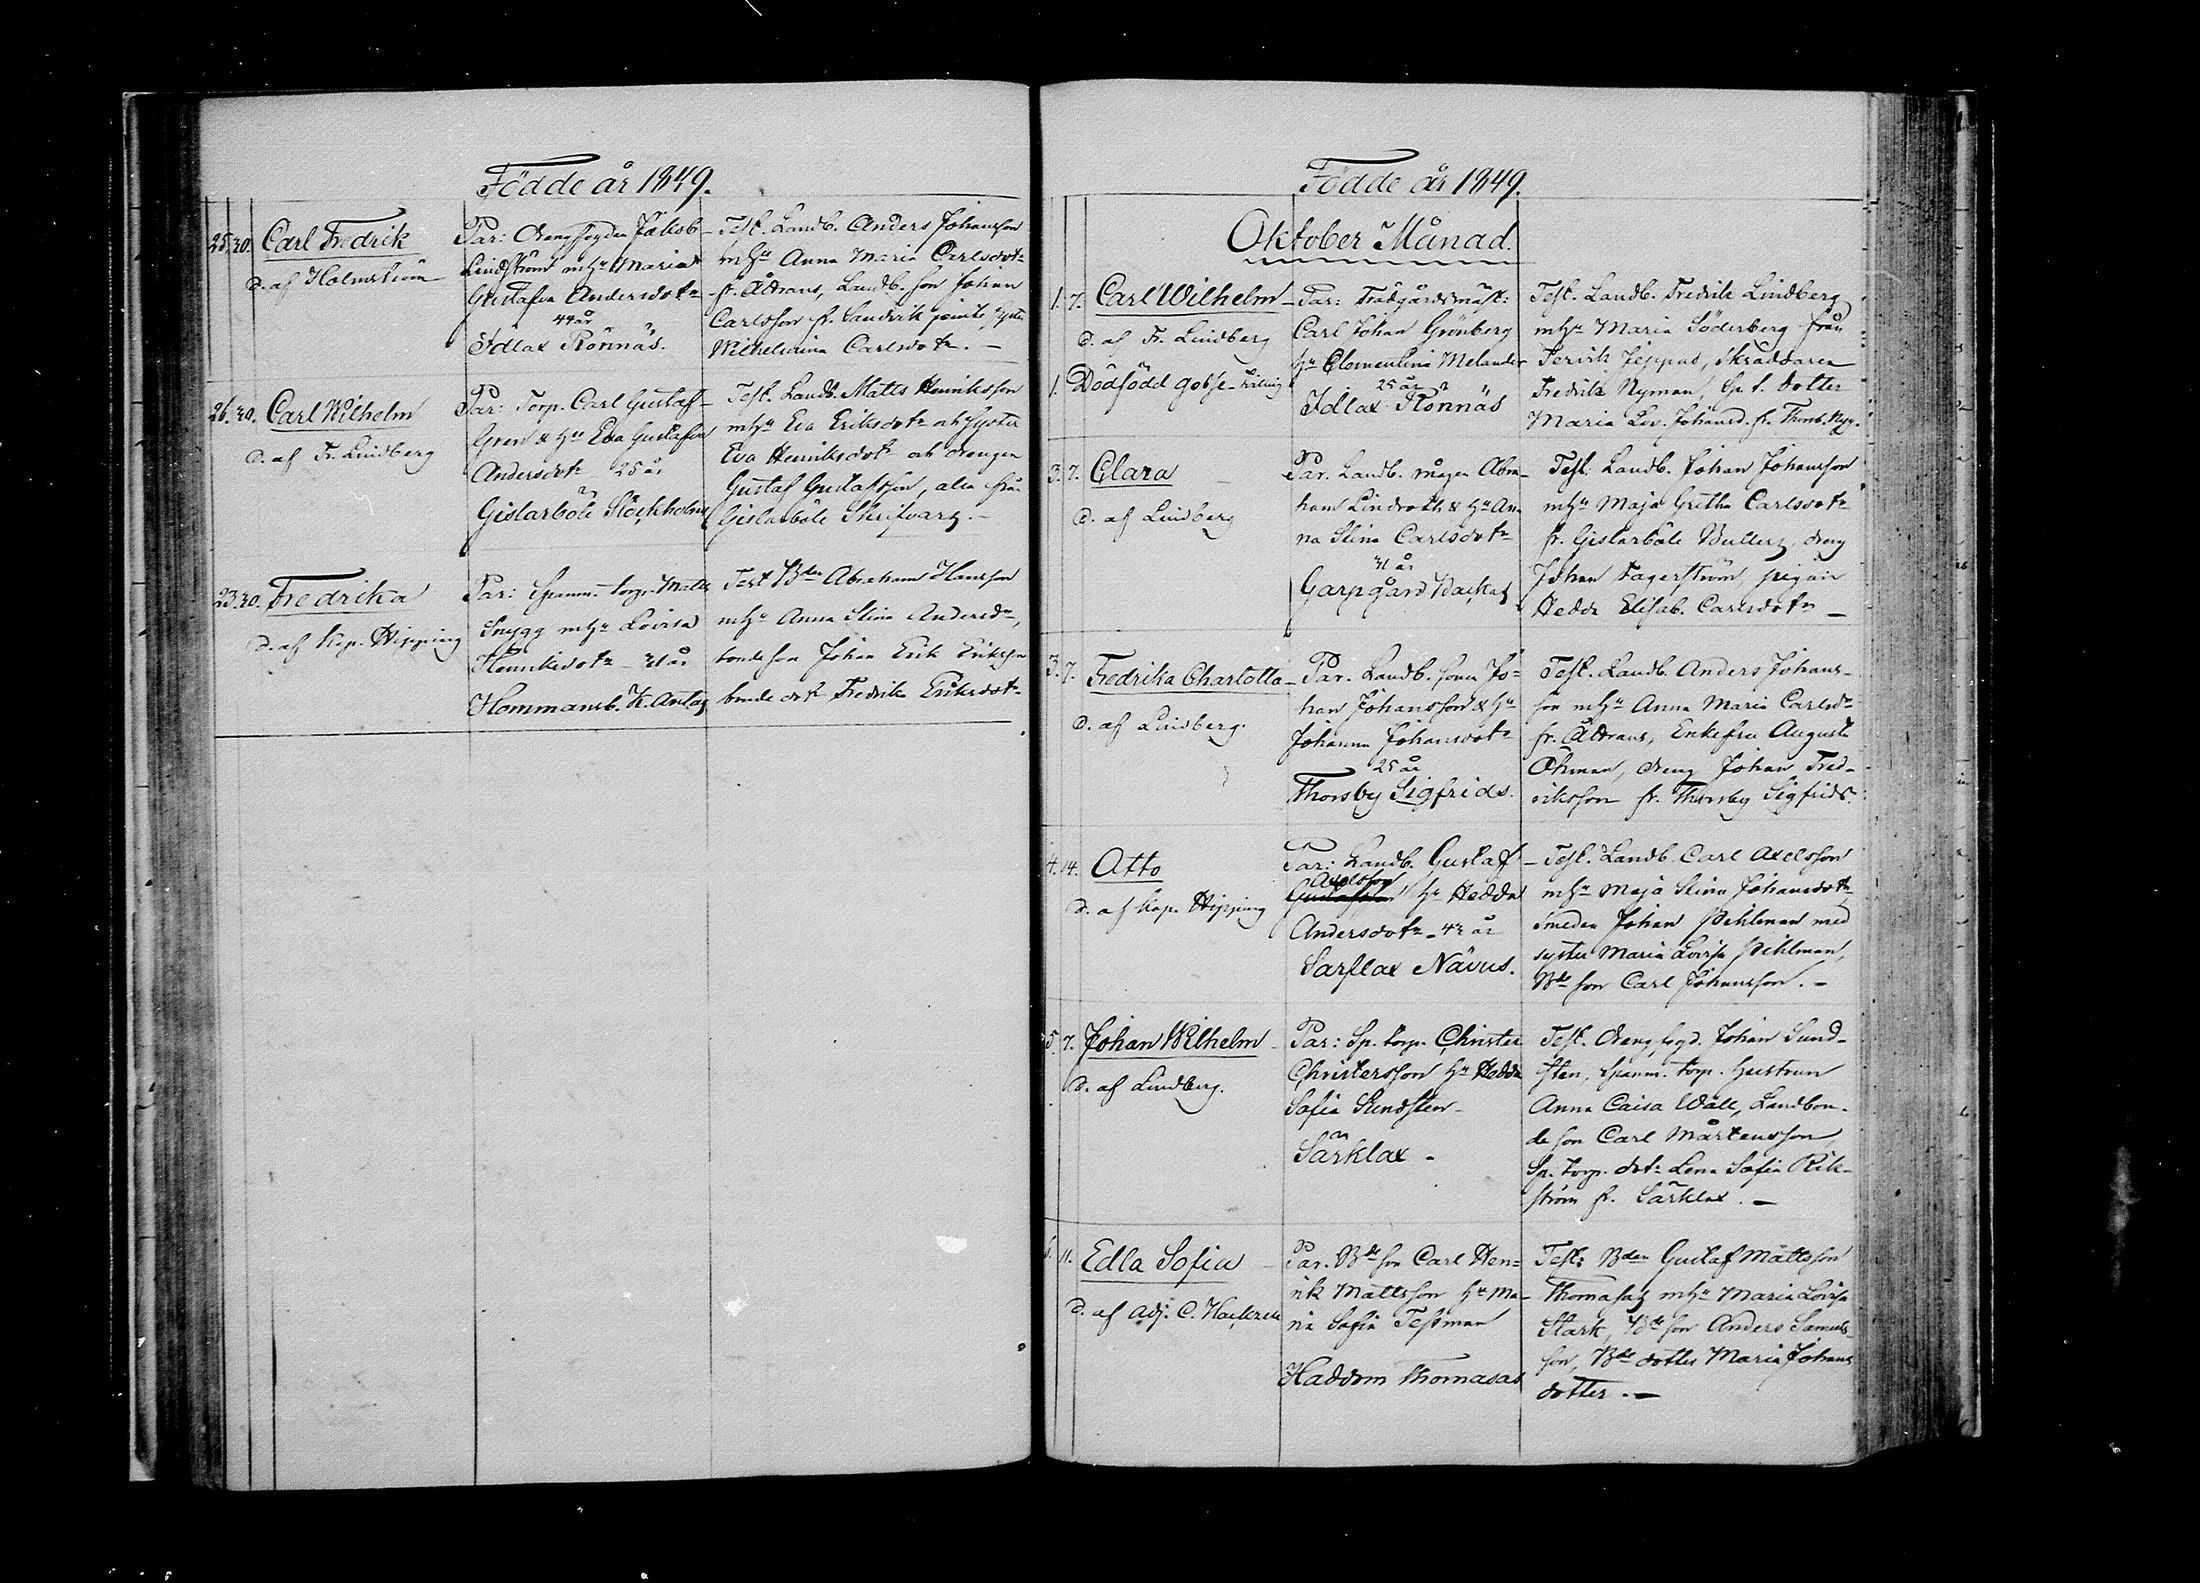 Födde år 1849.
25. 30. Carl Fredrik
d. af Holmström
Par: Drengfogden Jakob
Lindström m hu Maria
Gustafva Andersdotr
44 år
Idlax Rönnäs.
Test. Landb. Anders Johansson
m hu Anna Maria Carlsdotr
fr. Ådtrans, Landb. son Johan
Carlsson fr. Sandvik jemte syster
Wilhelmina Carlsdotr. —
26. 30. Carl Wilhelm
d. af Fr. Lindberg
Par: Torp. Carl Gustaf
Gren & Hu Eva Gustafva
Andersdotr 25 år
Gislarböle Stockholms
Test. Landb. Matts Henriksson
m hu Eva Eriksdotr och syster
Eva Henriksdotr och drengen
Gustaf Gustafsson, alla från
Gislarböle Skrifvars. —
23. 30. Fredrika
d. af Kap. Hipping
Par: Spanm. torp. Matts
Snygg m hu Lovisa
Henriksdotr 31 år
Hommansb. K. Antas
Test Bden Abraham Hansson
m hu Anna Stina Andersdr,
bondeson Johan Erik Eriksson
bonde dotr Fredrika Eriksdotr
Födde år 1849.
Oktober Månad.
1. 7. Carl Wilhelm
d. af Fr. Lindberg
1. Dödfödd gosse - tvilling
Par: Trädgårdsmäst:
Carl Johan Grönberg
hu Clementina Melander
25 år
Idlax Rönnäs
Test. Landb. Fredrik Lindberg
m hu Maria Söderberg från
Tervik Jeppas, Skräddaren
Fredrik Nyman, Sp. t. dotter
Maria Lov. Johansd. fr. Thorsb. Nyg.
3. 7. Clara
d. af Lindberg
Par. Landb. mågen Abra-
ham Lindroth & Hu An-
na Stina Carlsdotr
31 år
Garpgård Backas
Test. Landb. Johan Johansson
m hu Maja Gretha Carlsdotr
fr. Gislarböle Bullers, dreng
Johan Fagerström pigan
Hedda Elisab. Carlsdotr —
3. 7. Fredrika Charlotta
d. af Lindberg.
Par. Landb. sonen Jo-
han Johansson & Hu
Johanna Johansdotr
25 år
Thorsby Sigfrids.
Test. Landb. Anders Johans-
son m hu Anna Maria Carlsdr
fr. Ådtrans, Enkefru Augusta
Öhman, dreng Johan Fred-
riksson fr. Thorsby Sigfrids.
4. 14. Atto
d. af Kap. Hipping
Par: Landb. Gustaf
Axelsson
hu Hedda
Andersdotr - 42 år
Sarflax Nävus.
Test. Landb. Carl Axelsson
m hu Maja Stina Johansdotr
Smeden Johan Pihlman med
syster Maria Lovisa Pihlman,
Bde son Carl Johansson. —
5. 7. Johan Wilhelm
d. af Lindberg.
Par: Sp. torp. Christer
Christersson hu Hedda
Sofia Sundsten
Särklax -
Test. Drengfogd. Johan Sund-
sten, Spanm. torp. hustrun
Anna Caisa Wäll, Landbon-
de son Carl Mårtensson,
Sp. torp. dotr Lena Sofia Rik-
ström fr. Särklax. —
11. Edla Sofia
d. af Adj. C. Hackzell
Par. Bde son Carl Hen-
rik Mattsson hu Ma-
ria Sofia Tessman
Haddom Thomasas
Test: Bden Gustaf Mattsson
Thomasas m hu Maria Lovisa
Stark, Bde son Anders Samuels-
son, Bde dotter Maria Johans
dotter. —